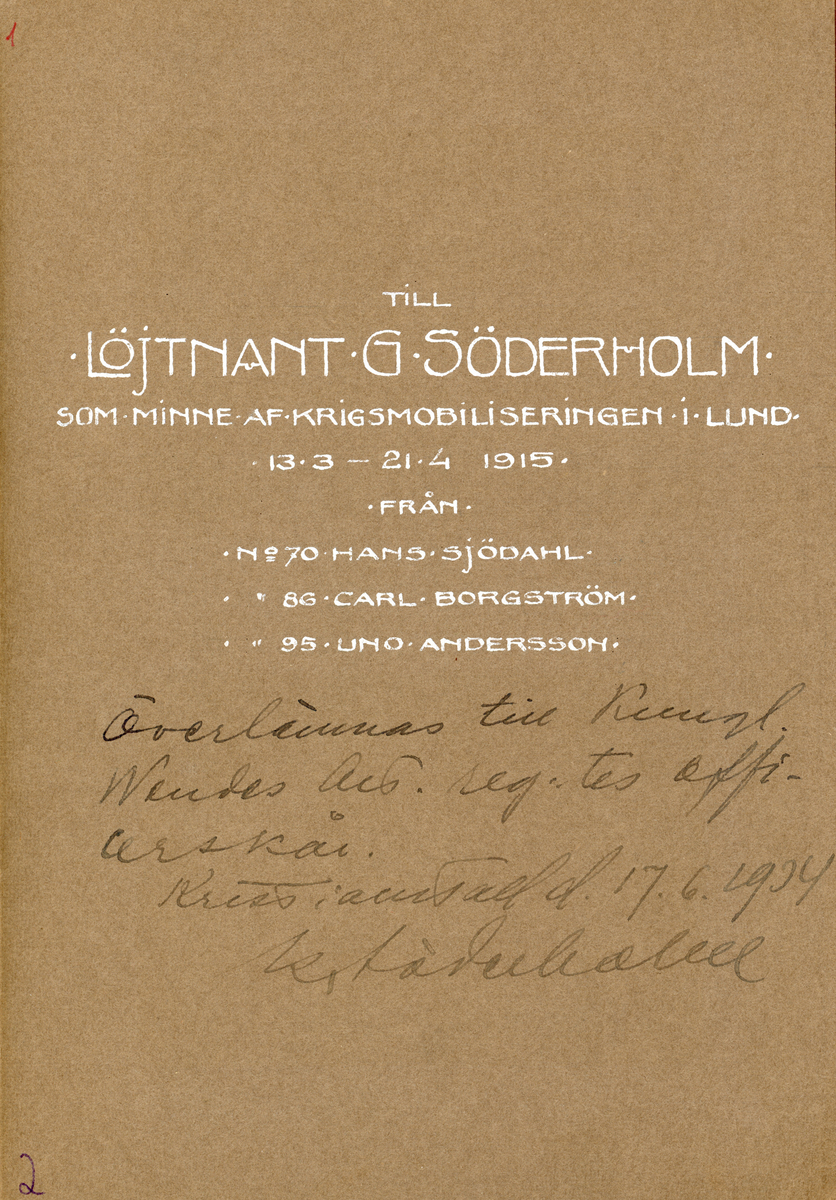 1
TILL
·LÖJTNANT·G·SÖDERHOLM·
SOM·MINNE·AF·KRIGSMOBILISERINGEN·I·LUND·
·13·3 — 21·4 1915·
·FRÅN·
·No 70·HANS·SJÖDAHL·
· " 86·CARL·BORGSTRÖM·
· " 95·UNO·ANDERSSON·
Överlämnas till Kungl.
Wendes Art. reg:tes offi-
cerskår.
Kristianstad d. 17.6.1934
2